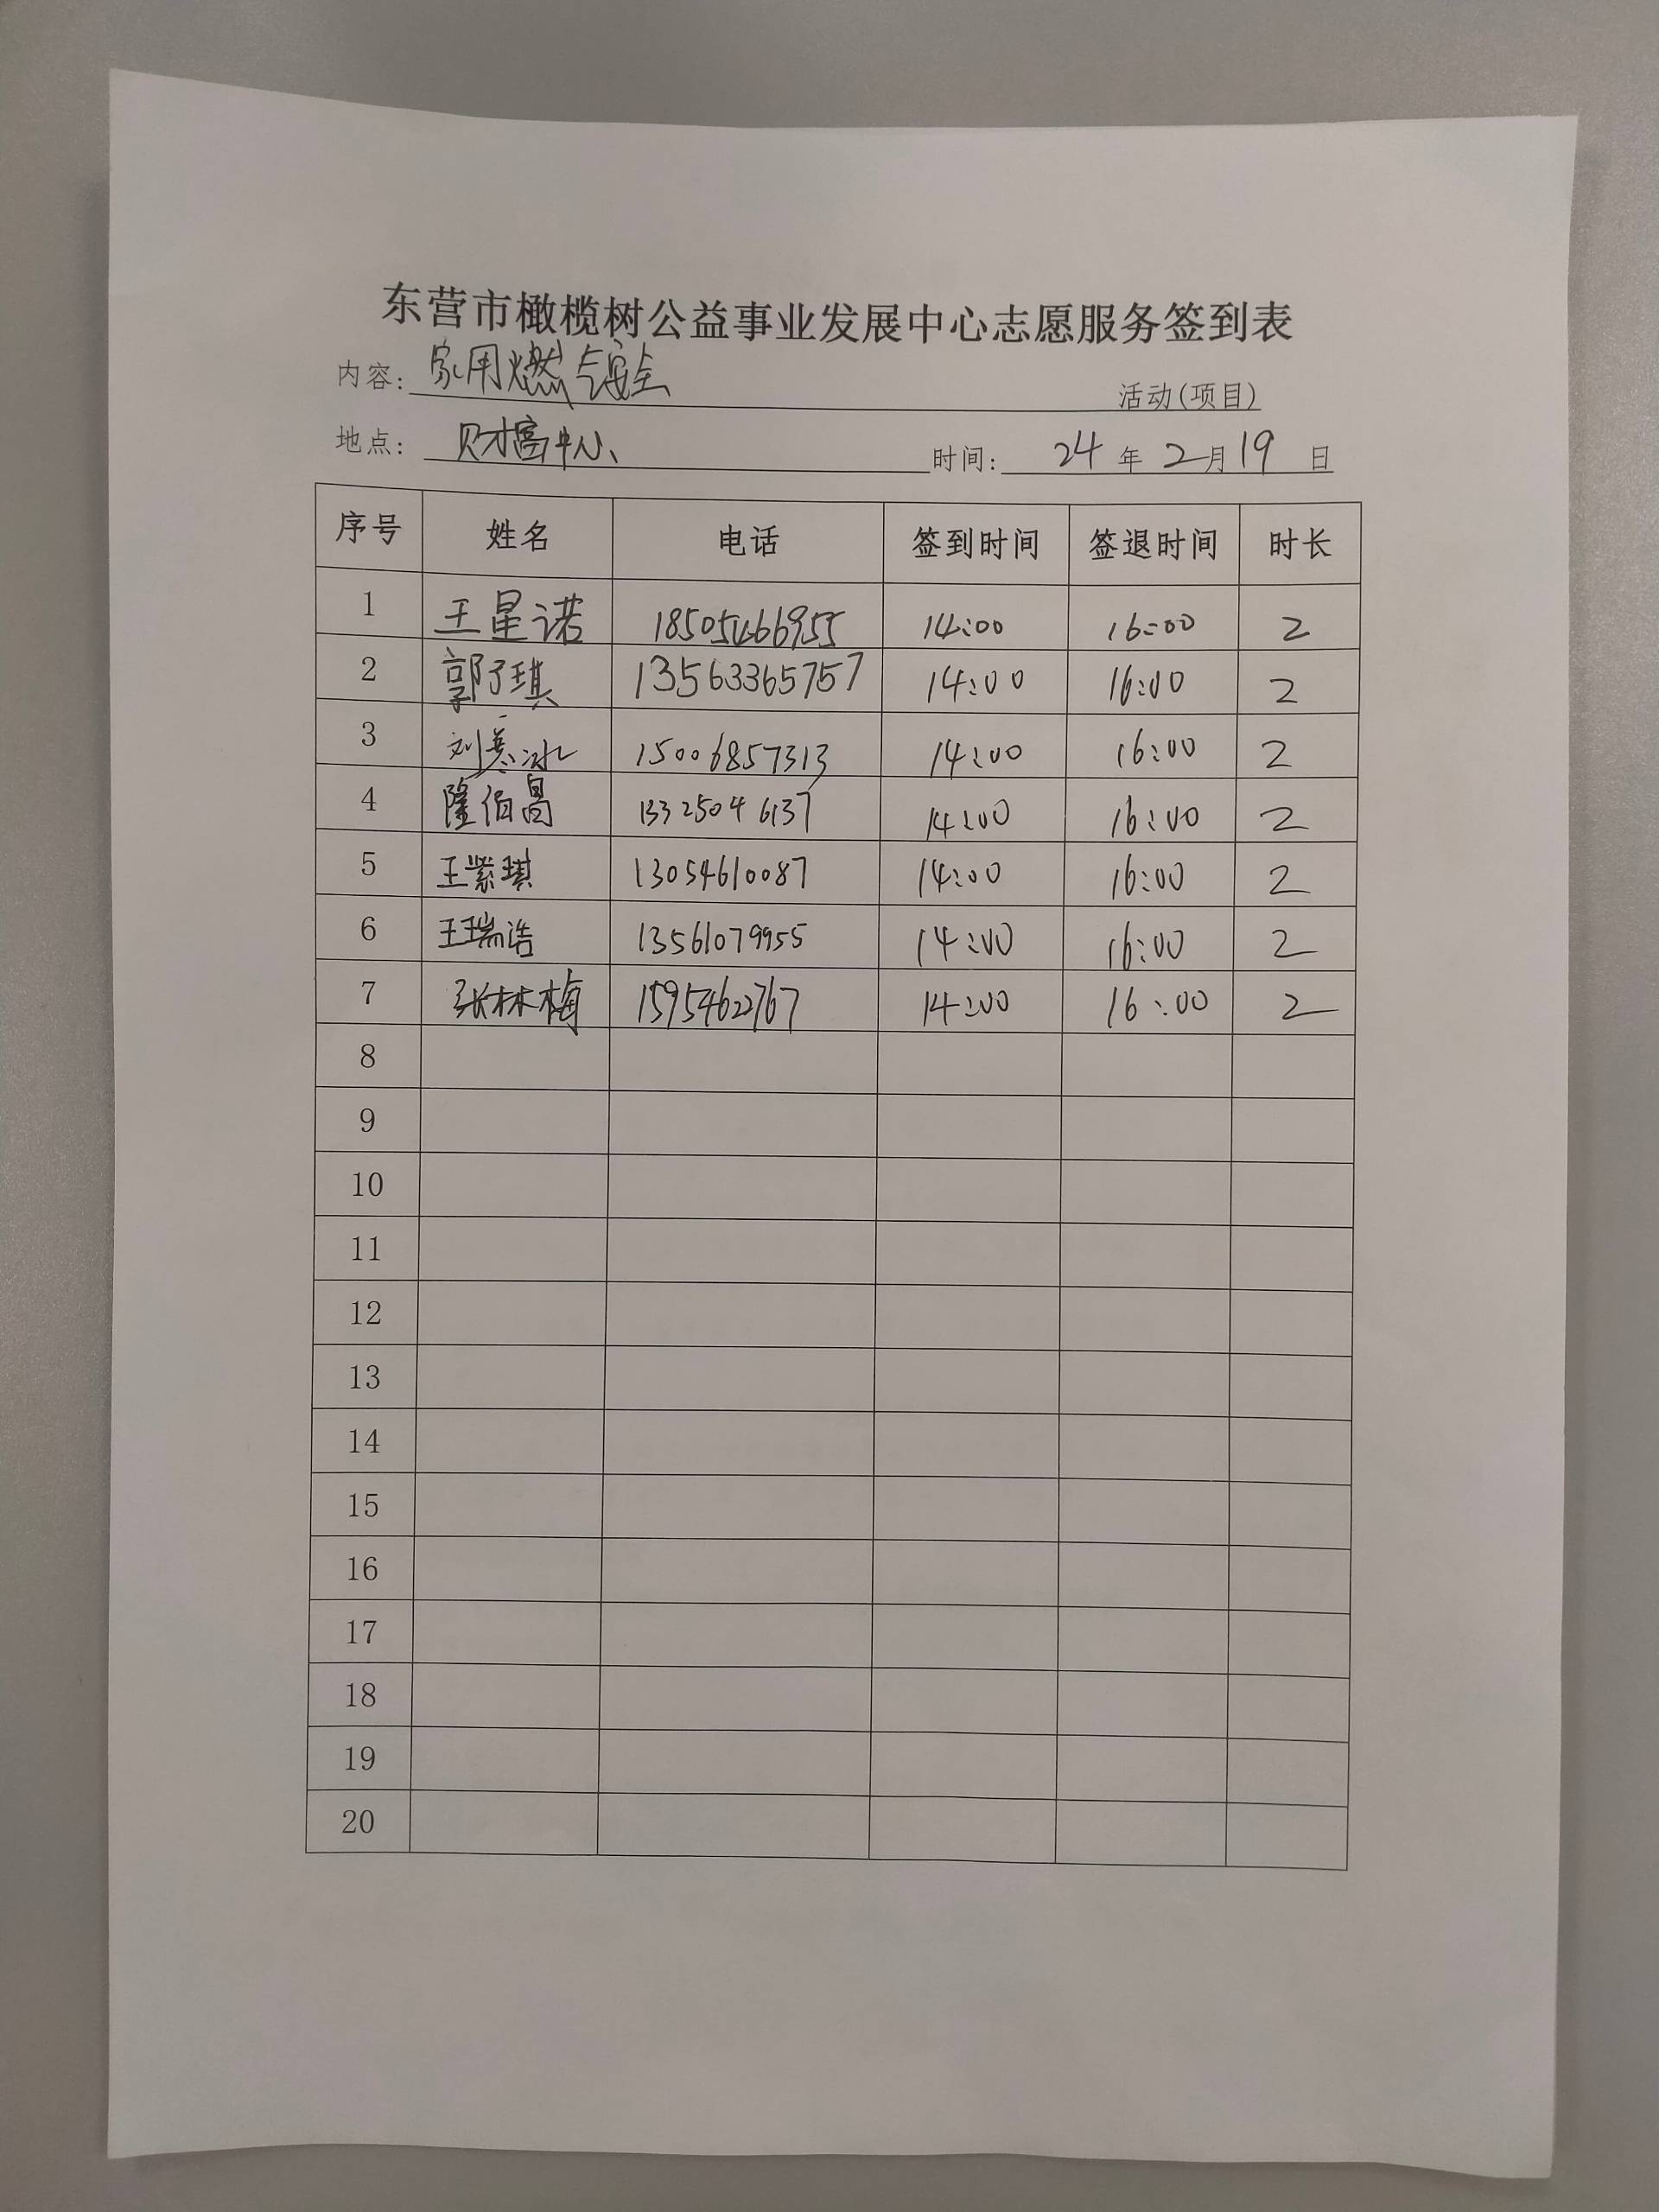 东营市橄榄树公益事业发展中心志愿服务签到表
内容: 家用燃气安全 活动(项目)
地点: 财富中心 时间: 24 年 2 月 19 日
序号 姓名 电话 签到时间 签退时间 时长
1 王星诺 18505466955 14:00 16:00 2
2 郭子琪 13563365757 14:00 16:00 2
3 15006857313 14:00 16:00 2
4 隆伯昌 13325046137 14:00 16:00 2
5 王紫琪 13054610087 14:00 16:00 2
6 王瑞浩 13561079955 14:00 16:00 2
7 张林梅 15954622767 14:00 16:00 2
8
9
10
11
12
13
14
15
16
17
18
19
20